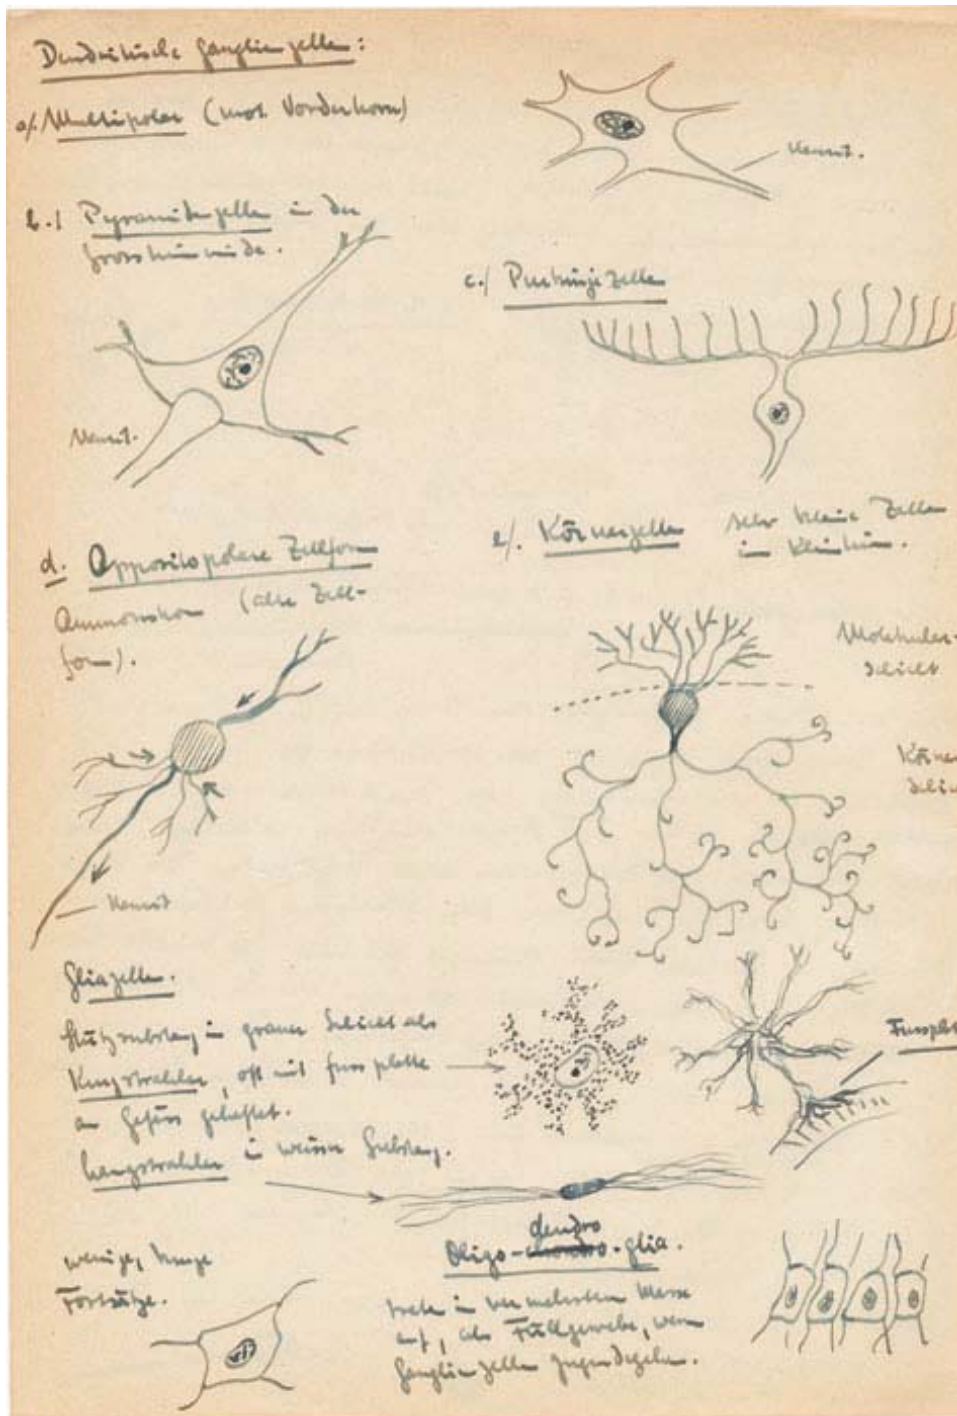 Dendritische Ganglienzellen:
a/. Multipolar (mot. Vorderhorn)
Neurit.
b./ Pyramidenzellen in der
Grosshirnrinde.
c./ Purkinje Zellen
Neurit.
d. Oppositopolare Zellform
Ammonshorn (alte Zell-
form).
e/. Körnerzellen sehr kleine Zellen
im Kleinhirn.
Molekular-
schicht
Körner
schic
Neurit
Gliazellen.
Stützsubstanz in grauer Schicht als
Kurzstrahler, oft mit Fussplatte
an Gefäss geheftet.
Fusspla
Langstrahler in weisser Substanz.
wenige, kurze
Fortsätze.
dendro
Oligo- -glia.
treten in vermehrtem Masse
auf, als Füllgewebe, wenn
Ganglienzellen zugrundegehen.